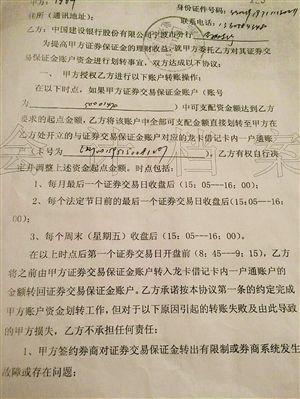 甲方:
身份证件号码:
住所(通讯地址):
联系电话:
乙方:中国建设银行股份有限公司宁波市分行
为提高甲方证券保证金的理财收益,就甲方委托乙方对其证券
交易保证金账户资金进行划转事宜,双方达成以下协议:
一、甲方授权乙方进行以下账户转账操作:
在以下时点,如果甲方证券交易保证金账户(账号
)中可支配资金额达到乙方
要求的起点金额,乙方将该账户中全部可支配金额直接划转至甲方在
乙方处开立的与证券交易保证金账户对应的龙卡借记卡内一户通账
户(卡号为 ),乙方有权自行决
定并调整上述资金起点金额。时点包括:
1、每月最后一个证券交易日收盘后(15:05——16:00);
2、每个法定节日前的最后一个证券交易日收盘后(15:05——16:
00);
3、每个周末(星期五)收盘后(15:05——16:00);
在以上时点后第一个证券交易日开盘前(8:45——9:15),乙方
将之前由甲方证券交易保证金账户转入龙卡借记卡内一户通账户的
金额转回证券交易保证金账户。乙方承诺按本协议第一条的约定完成
甲方账户资金划转工作,但对于以下原因引起的转账失败及由此导致
的甲方损失,乙方不承担任何责任:
1、甲方签约券商对证券交易保证金转出有限制或券商系统发生
故障或存在问题;